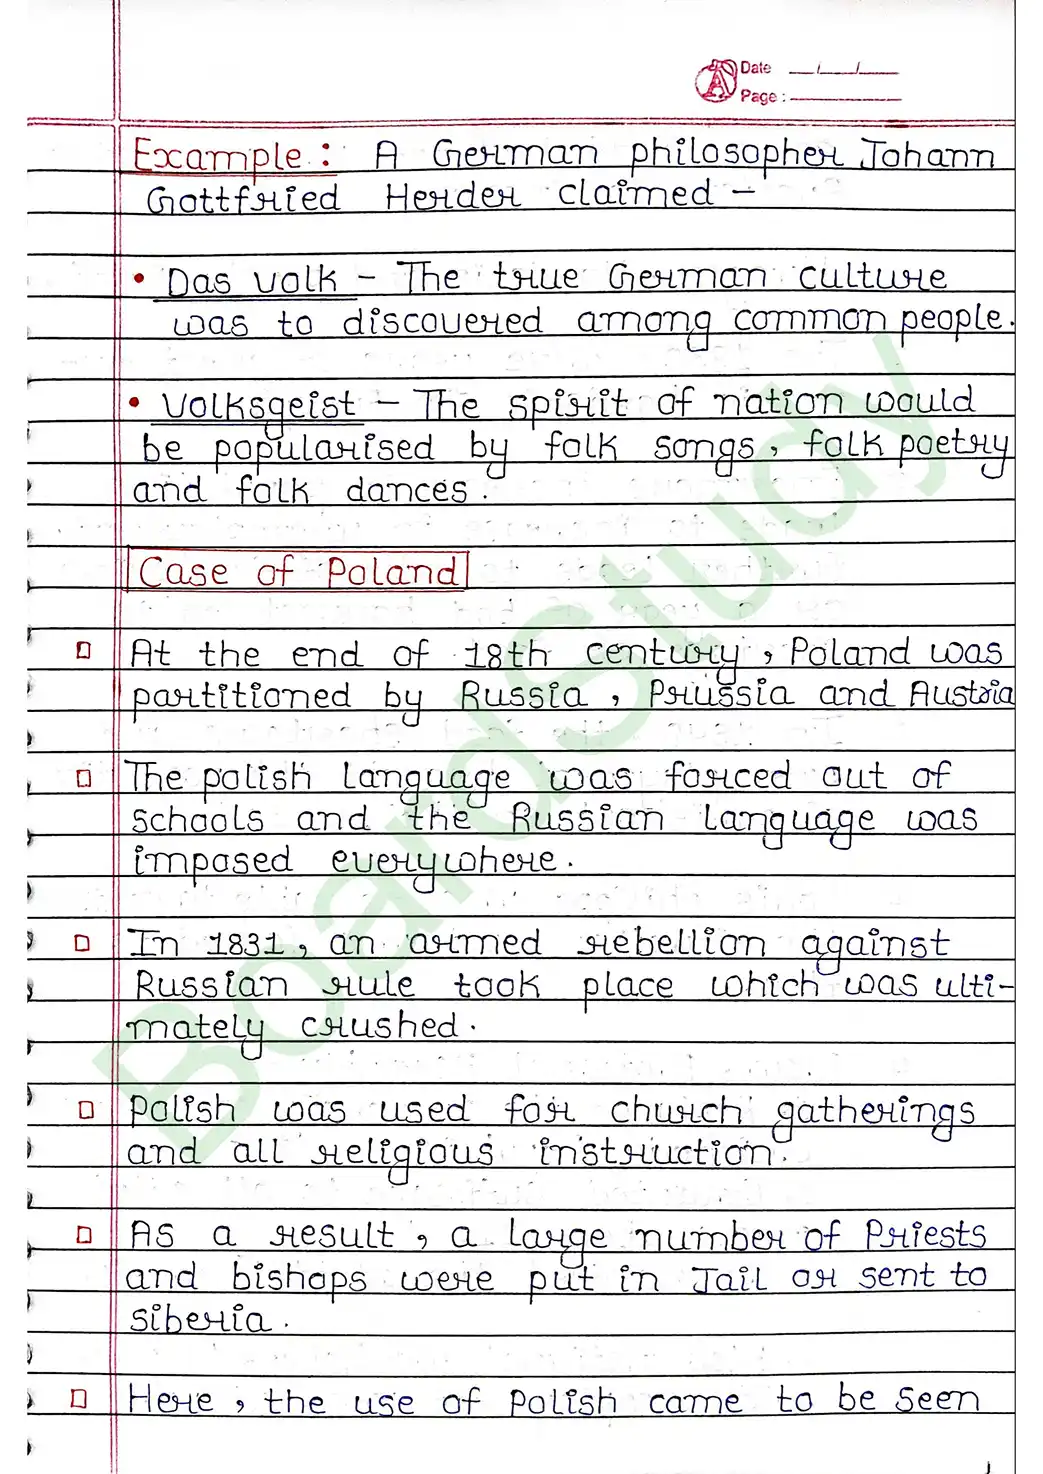 Date __/__/__
Page : ________
Example : A German philosopher Johann
Gottfried Herder claimed –
• Das volk – The true German culture
was to discovered among common people.
• Volksgeist – The spirit of nation would
be popularised by folk songs, folk poetry
and folk dances.
Case of Poland
□ At the end of 18th century, Poland was
partitioned by Russia, Prussia and Austria
□ The polish language was forced out of
schools and the Russian language was
imposed everywhere.
□ In 1831, an armed rebellion against
Russian rule took place which was ulti-
mately crushed.
□ Polish was used for church gatherings
and all religious instruction.
□ As a result, a large number of Priests
and bishops were put in Jail or sent to
siberia.
□ Here, the use of Polish came to be seen
BoardStudy